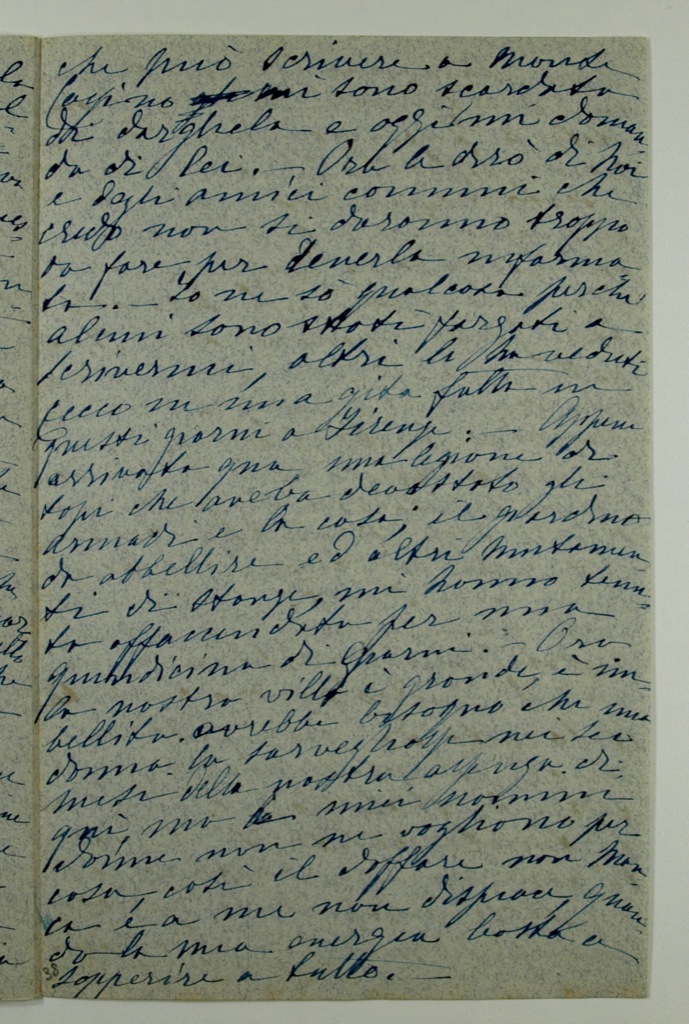 che può scrivere a Monte
Cassino mi sono scordata
di darghela e oggi mi doman-
da di lei. — Ora le dirò di noi
e degli amici comuni che
credo non si daranno troppo
da fare per tenerla informa-
ta. — Io ne sò qualcosa perché
alcuni sono stati forzati a
scrivermi, altri li ha veduti
Cecco in una gita fatta in
questi giorni a Firenze. — Appena
arrivata qua una legione di
topi che aveva devastato gli
armadi e la casa; il giardino
da abbellire ed altri mutamen-
ti di stanze, mi hanno tenu-
ta affaccendata per una
quindicina di giorni. — Ora
la nostra villa è grande, è im-
bellita. avrebbe bisogno che una
donna la sorvegliasse nei sei
mesi della nostra assenza di
qui, ma i miei uomini
donne non ne vogliono per
casa, così il daffare non man
ca e a me non dispiace, quan-
do la mia energia basta a
sopperire a tutto. —
38